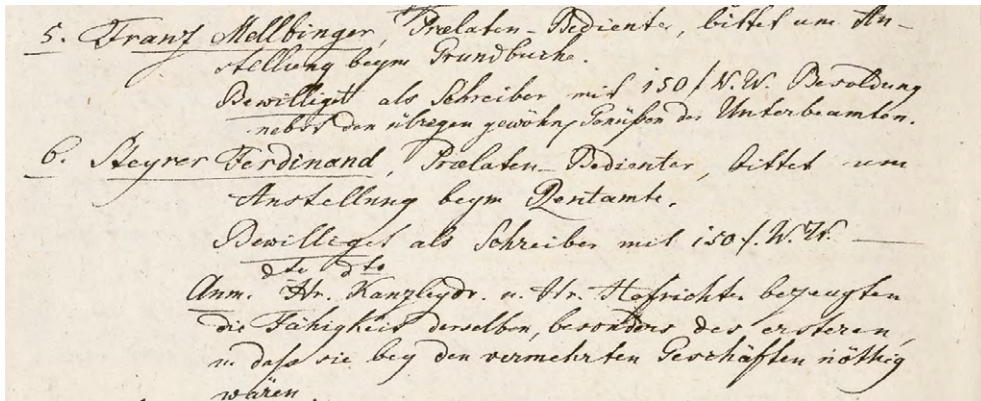 5. Franz Mellbinger, Prælaten-Bedienter, bittet um An-
stellung beym Grundbuche.
Bewilliget als Schreiber mit 150 f W. W. Besoldung
nebst den übrigen gewöhnl Genüßen der Unterbeamten.
6. Steyrer Ferdinand, Prælaten-Bedienter, bittet um
Anstellung beym Rentamte.
Bewilliget als Schreiber mit 150 f. W. W.
dto dto
Anm. Hr. Kanzleydr. u. Hr. Hofrichter bezeugten
die Fähigkeit derselben, besonders des ersteren,
u. daß sie bey den vermehrten Geschäften nöthig
wären.